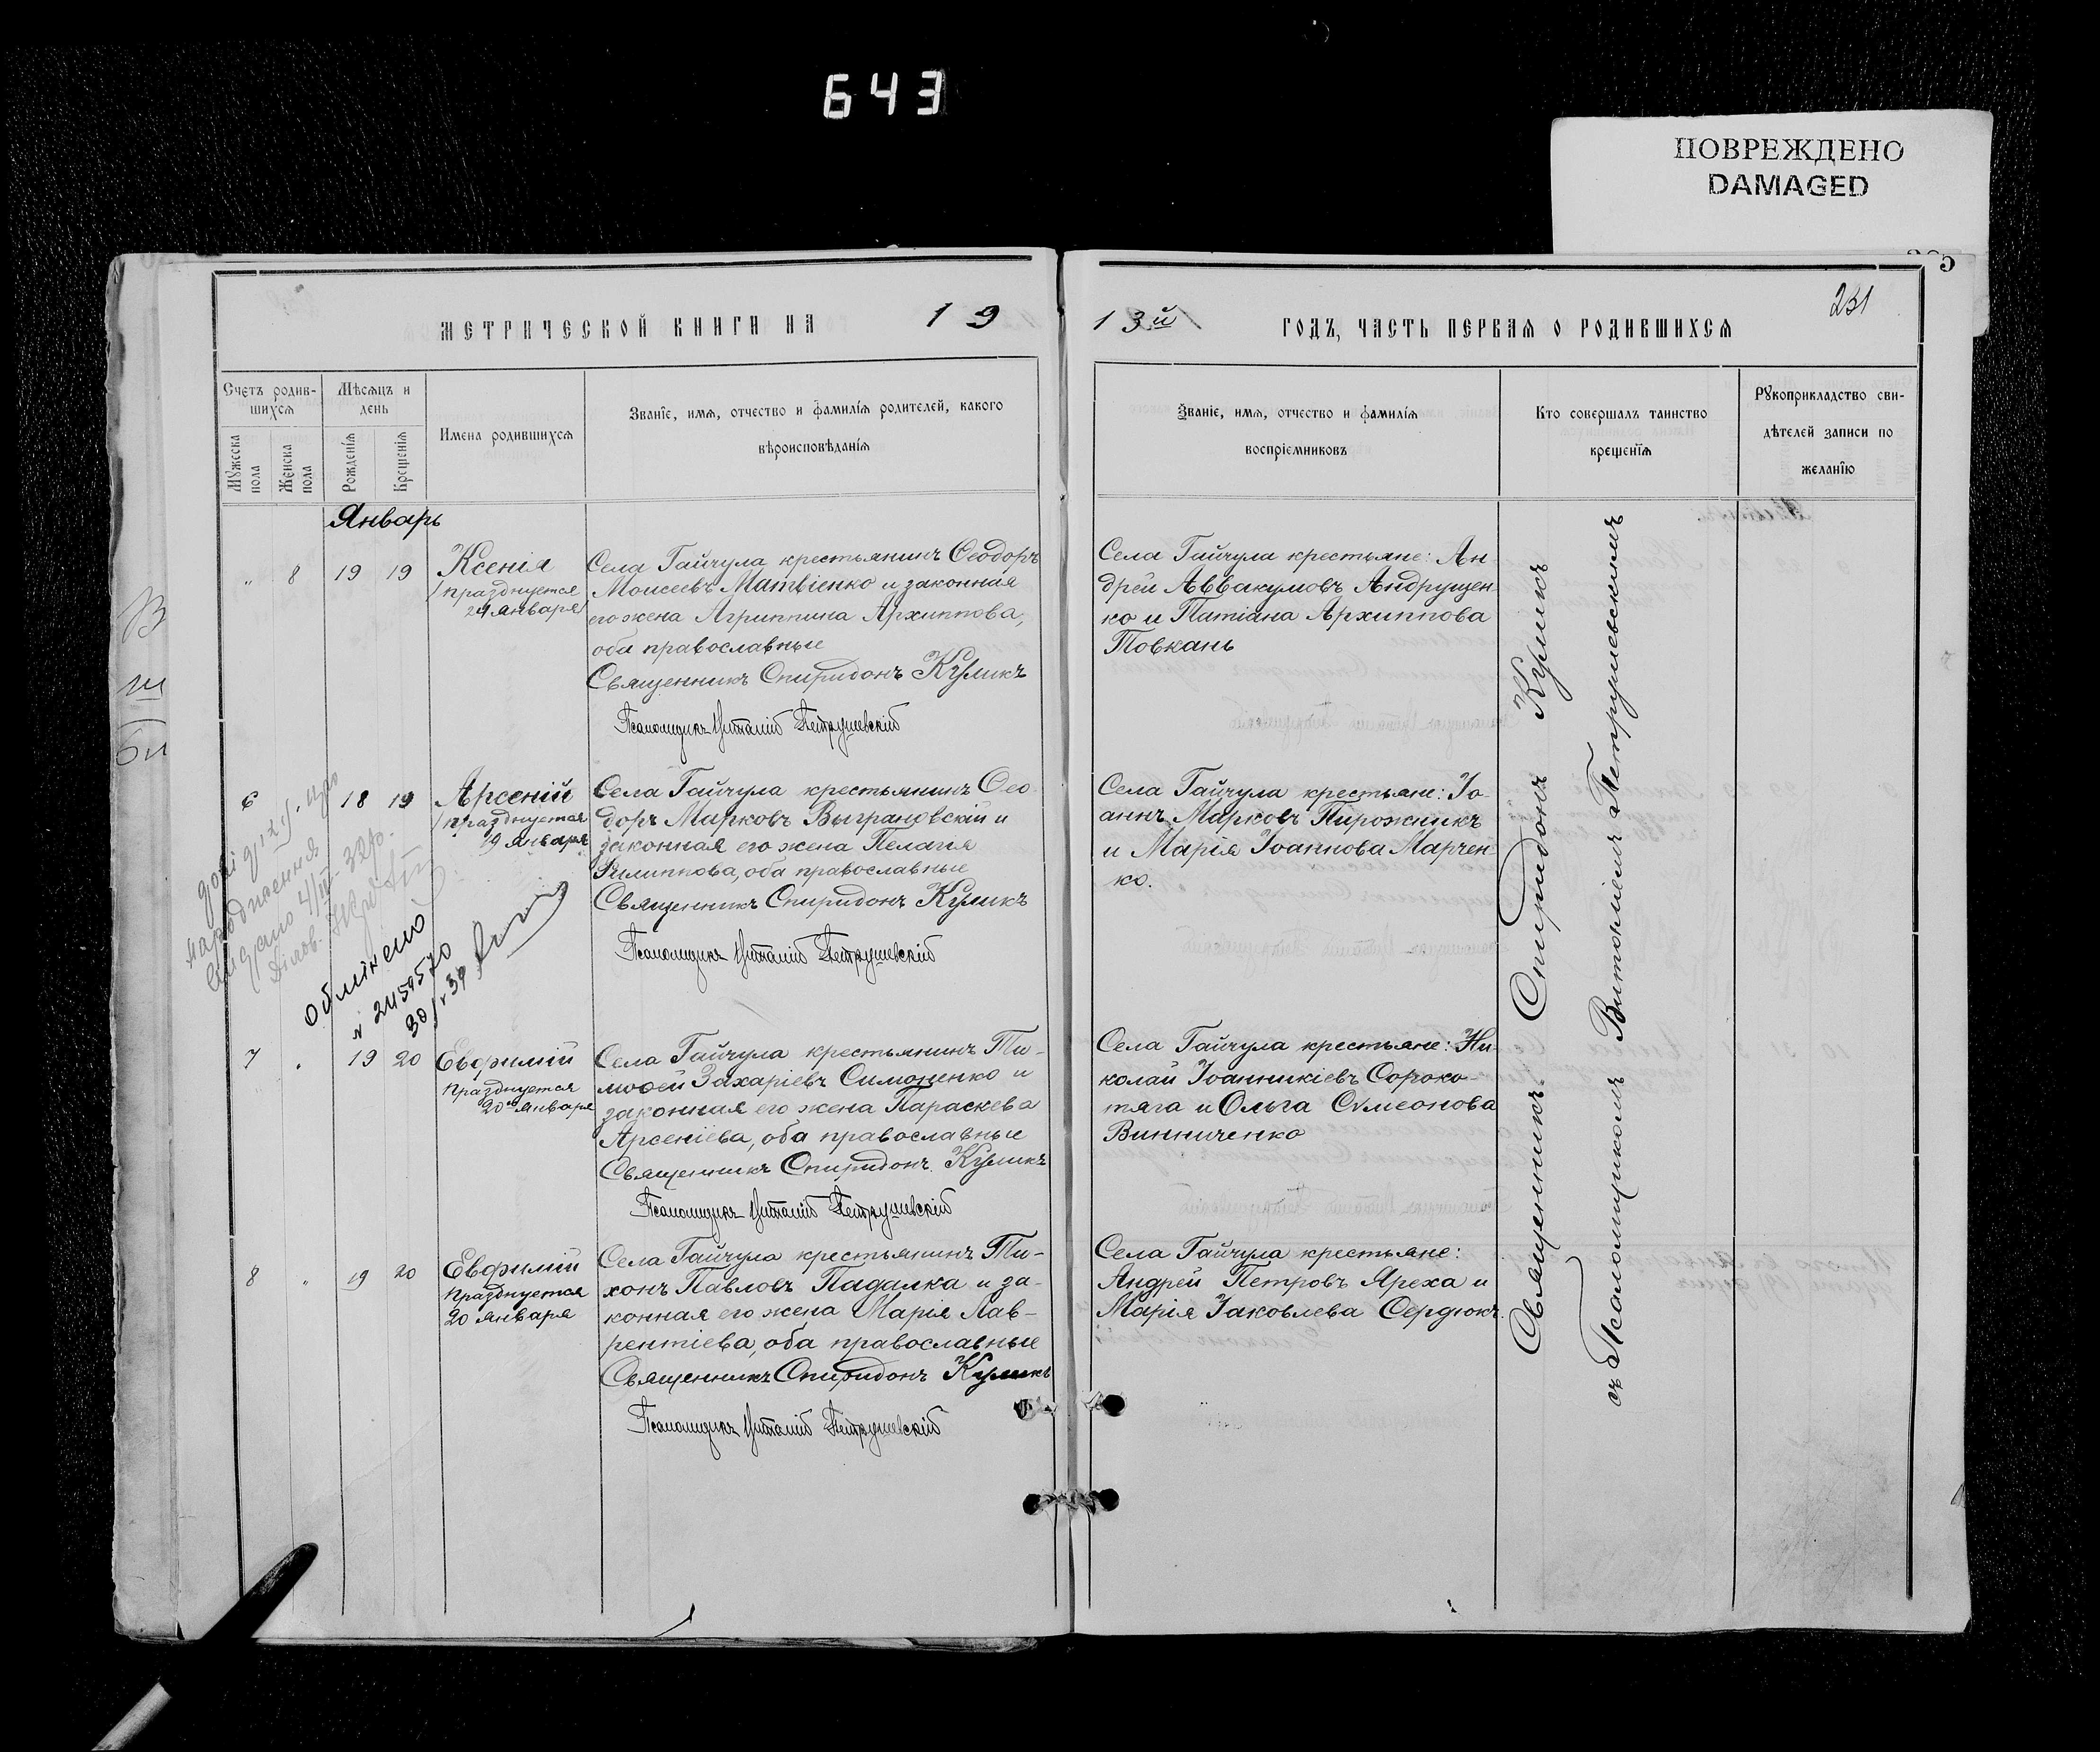 643
ПОВРЕЖДЕНО
DAMAGED
231
МЕТРИЧЕСКОЙ КНИГИ НА 19
13й ГОДЪ, ЧАСТЬ ПЕРВАЯ О РОДИВШИХСЯ
Счетъ родив-
шихся
Мужеска
пола
Женска
пола
Мѣсяцъ и
день
Рожденія
Крещенія
Имена родившихся
Званіе, имя, отчество и фамилія родителей, какого
вѣроисповѣданія
Званіе, имя, отчество и фамилія
воспріемниковъ
Кто совершалъ таинство
крещенія
Рукоприкладство сви-
дѣтелей записи по
желанію
Январь
" 8 19 19
Ксенія
/празднуется
24 января/
Села Гайчула крестьянинъ Ѳеодоръ
Моисеевъ Матвіенко и законная
его жена Агриппина Архиппова,
оба православные
Священникъ Спиридонъ Куликъ
Псаломщикъ Виталій Петрушевскій
Села Гайчула крестьяне: Ан-
дрей Аввакумовъ Андрущен-
ко и Татіана Архиппова
Товкань
6 18 19
Арсеній
/празднуется
19 января
Села Гайчула крестьянинъ Ѳео-
доръ Марковъ Выграновскій и
законная его жена Пелагія
Филиппова, оба православные
Священникъ Спиридонъ Куликъ
Псаломщикъ Виталій Петрушевскій
Села Гайчула крестьяне: Іо-
аннъ Марковъ Пирожникъ
и Марія Іоаннова Марчен-
ко.
народження
Обмінено
№ 2459570
7 " 19 20
Евфимій
Празднуется
20 января
Села Гайчула крестьянинъ Ти-
моѳей Захаріевъ Симоненко и
законная его жена Параскева
Арсеніева, оба православные
Священникъ Спиридонъ Куликъ
Псаломщикъ Виталій Петрушевскій
Села Гайчула крестьяне: Ни-
колай Іоанникіевъ Сороко-
тяга и Ольга Сѵмеонова
Винниченко
8 " 19 20
Евфимій
Празднуется
20 января
Села Гайчула крестьянинъ Ти-
хонъ Павловъ Падалка и за-
конная его жена Марія Лав-
рентіева, оба православные
Священникъ Спиридонъ Куликъ
Псаломщикъ Виталій Петрушевскій
Села Гайчула крестьяне:
Андрей Петровъ Яреха и
Марія Іаковлева Сердюкъ.
Священникъ Спиридонъ Куликъ
съ Псаломщикомъ Виталіемъ Петрушевскимъ